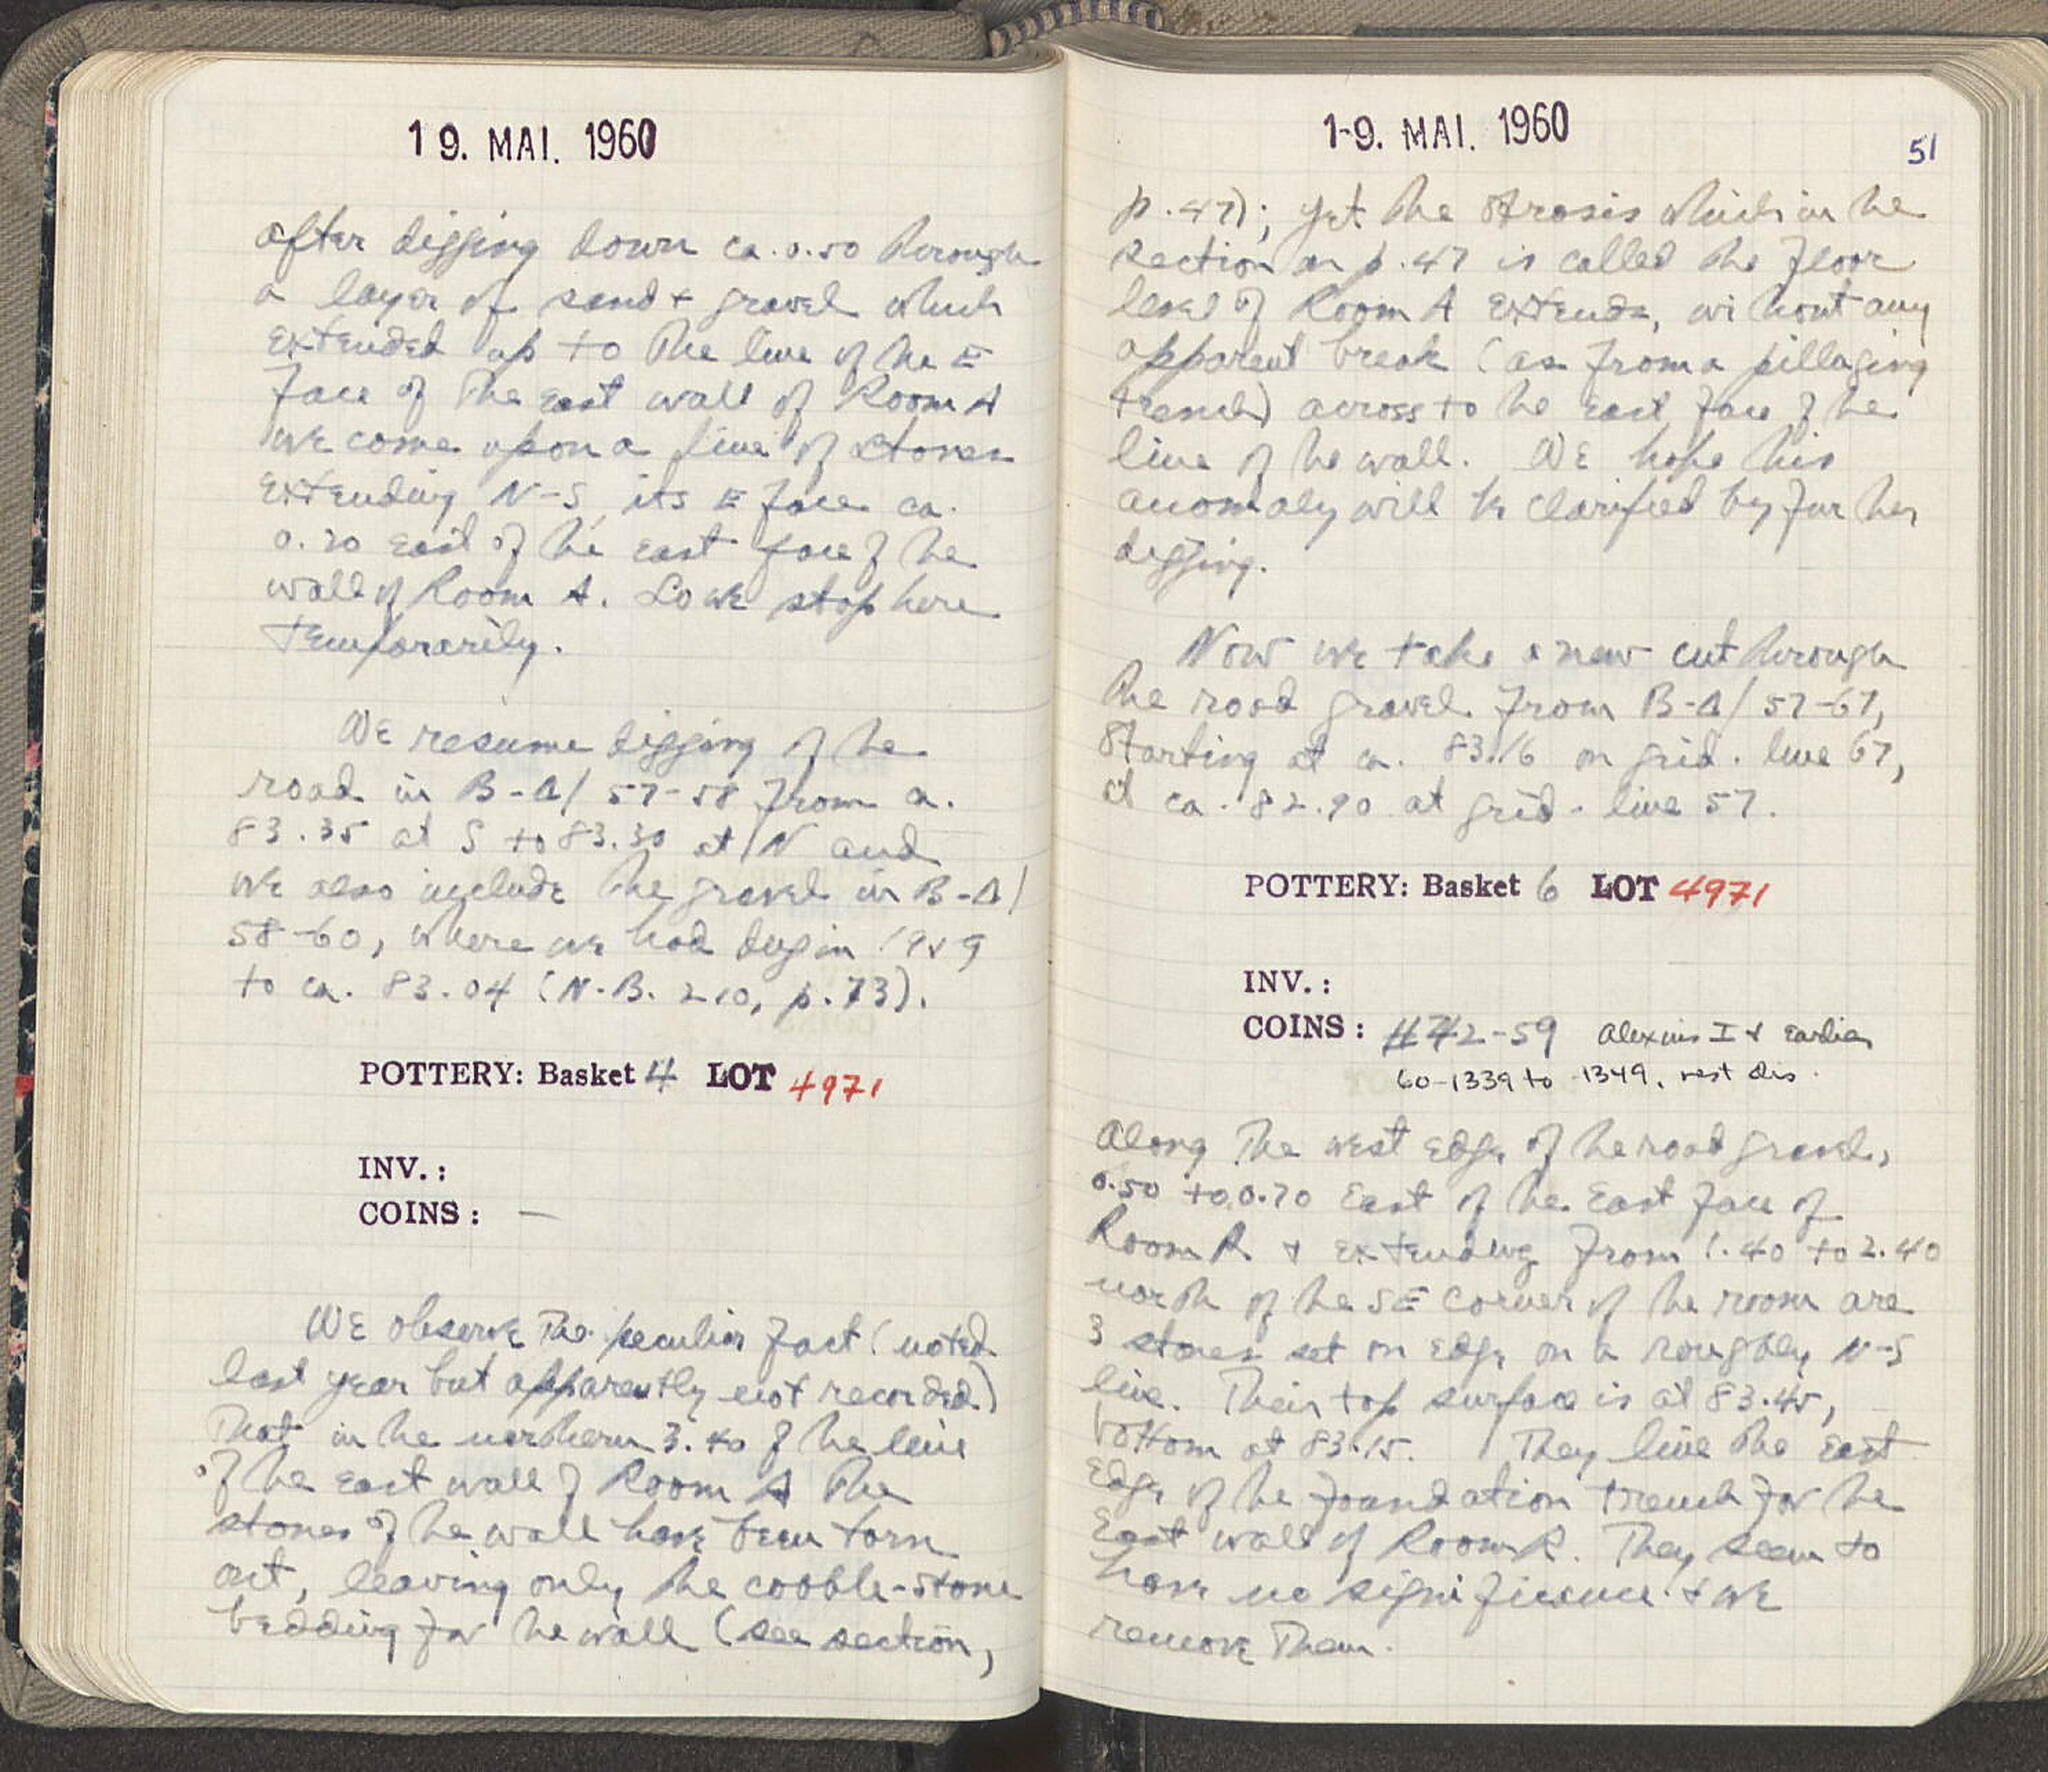 19. MAI. 1960
after digging down ca. 0.50 through
a layer of sand + gravel which
extended up to the line of the E
face of the east wall of Room A
we come upon a line of stones
extending N-S, its E face ca.
0.20 east of the east face of the
wall of Room A. So we stop here
temporarily.
We resume digging of the
road in B-Δ/ 57-58 from ca.
83.35 at S to 83.30 at N and
we also include the gravel in B-Δ/
58-60, where we had dug in 1959
to ca. 83.04 (N.B. 210, p.73).
POTTERY: Basket 4 LOT 4971
INV.:
COINS: —
We observe the peculiar fact (noted
last year but apparently not recorded)
that in the northern 3.40 of the line
of the east wall of Room A the
stones of the wall have been torn
out, leaving only the cobble-stone
bedding for the wall (see section,
19. MAI. 1960
51
p.47); yet the strosis which in the
section on p.47 is called the floor
level of Room A extends, without any
apparent break (as from a pillaging
trench) across to the east face of the
line of the wall. We hope this
anomaly will be clarified by further
digging.
Now we take a new cut through
the road gravel from B-Δ/ 57-67,
starting at ca. 83.16 on grid-line 67,
at ca. 82.90 at grid-line 57.
POTTERY: Basket 6 LOT 4971
INV.:
COINS: #42-59 Alexius I + Earlier
60-1339 to 1349, rest dis.
Along the west edge of the road gravel,
0.50 to 0.70 East of the East face of
Room R + extending from 1.40 to 2.40
north of the SE corner of the room are
3 stones set on edge on a roughly N-S
line. Their top surface is at 83.45,
bottom at 83.15. They line the east
edge of the foundation trench for the
East wall of Room R. They seem to
have no significance + we
remove them.